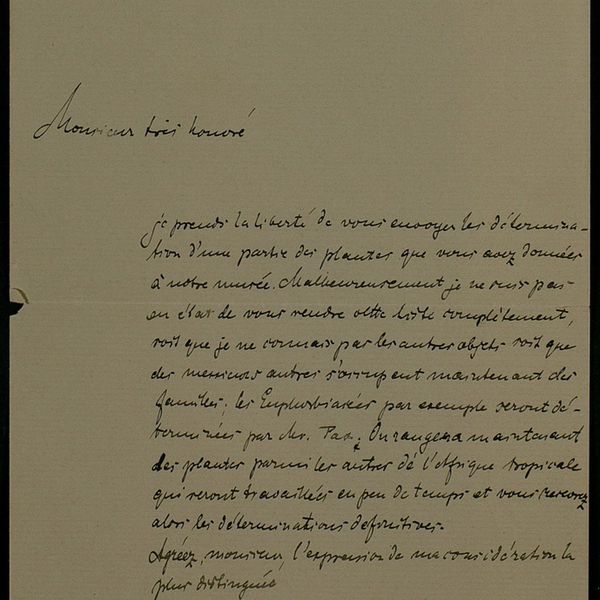 Monsieur très honoré
je prends la liberté de vous envoyer les détermina-
tion d'une partie des plantes que vous avez données
à notre musée. Malheureusement je ne suis pas
en état de vous rendre cette liste complètement,
soit que je ne connais pas les autres objets soit que
des messieurs autres s'occupent maintenant des
familles; les Euphorbiacées par exemple seront dé-
terminées par Mr. Pax. On rangera maintenant
des plantes parmi les autres de l'Afrique tropicale
qui seront travaillées en peu de temps et vous recevrez
alors les déterminations definitives.
Agréez, monsieur, l'expression de ma considération la
plus distinguée